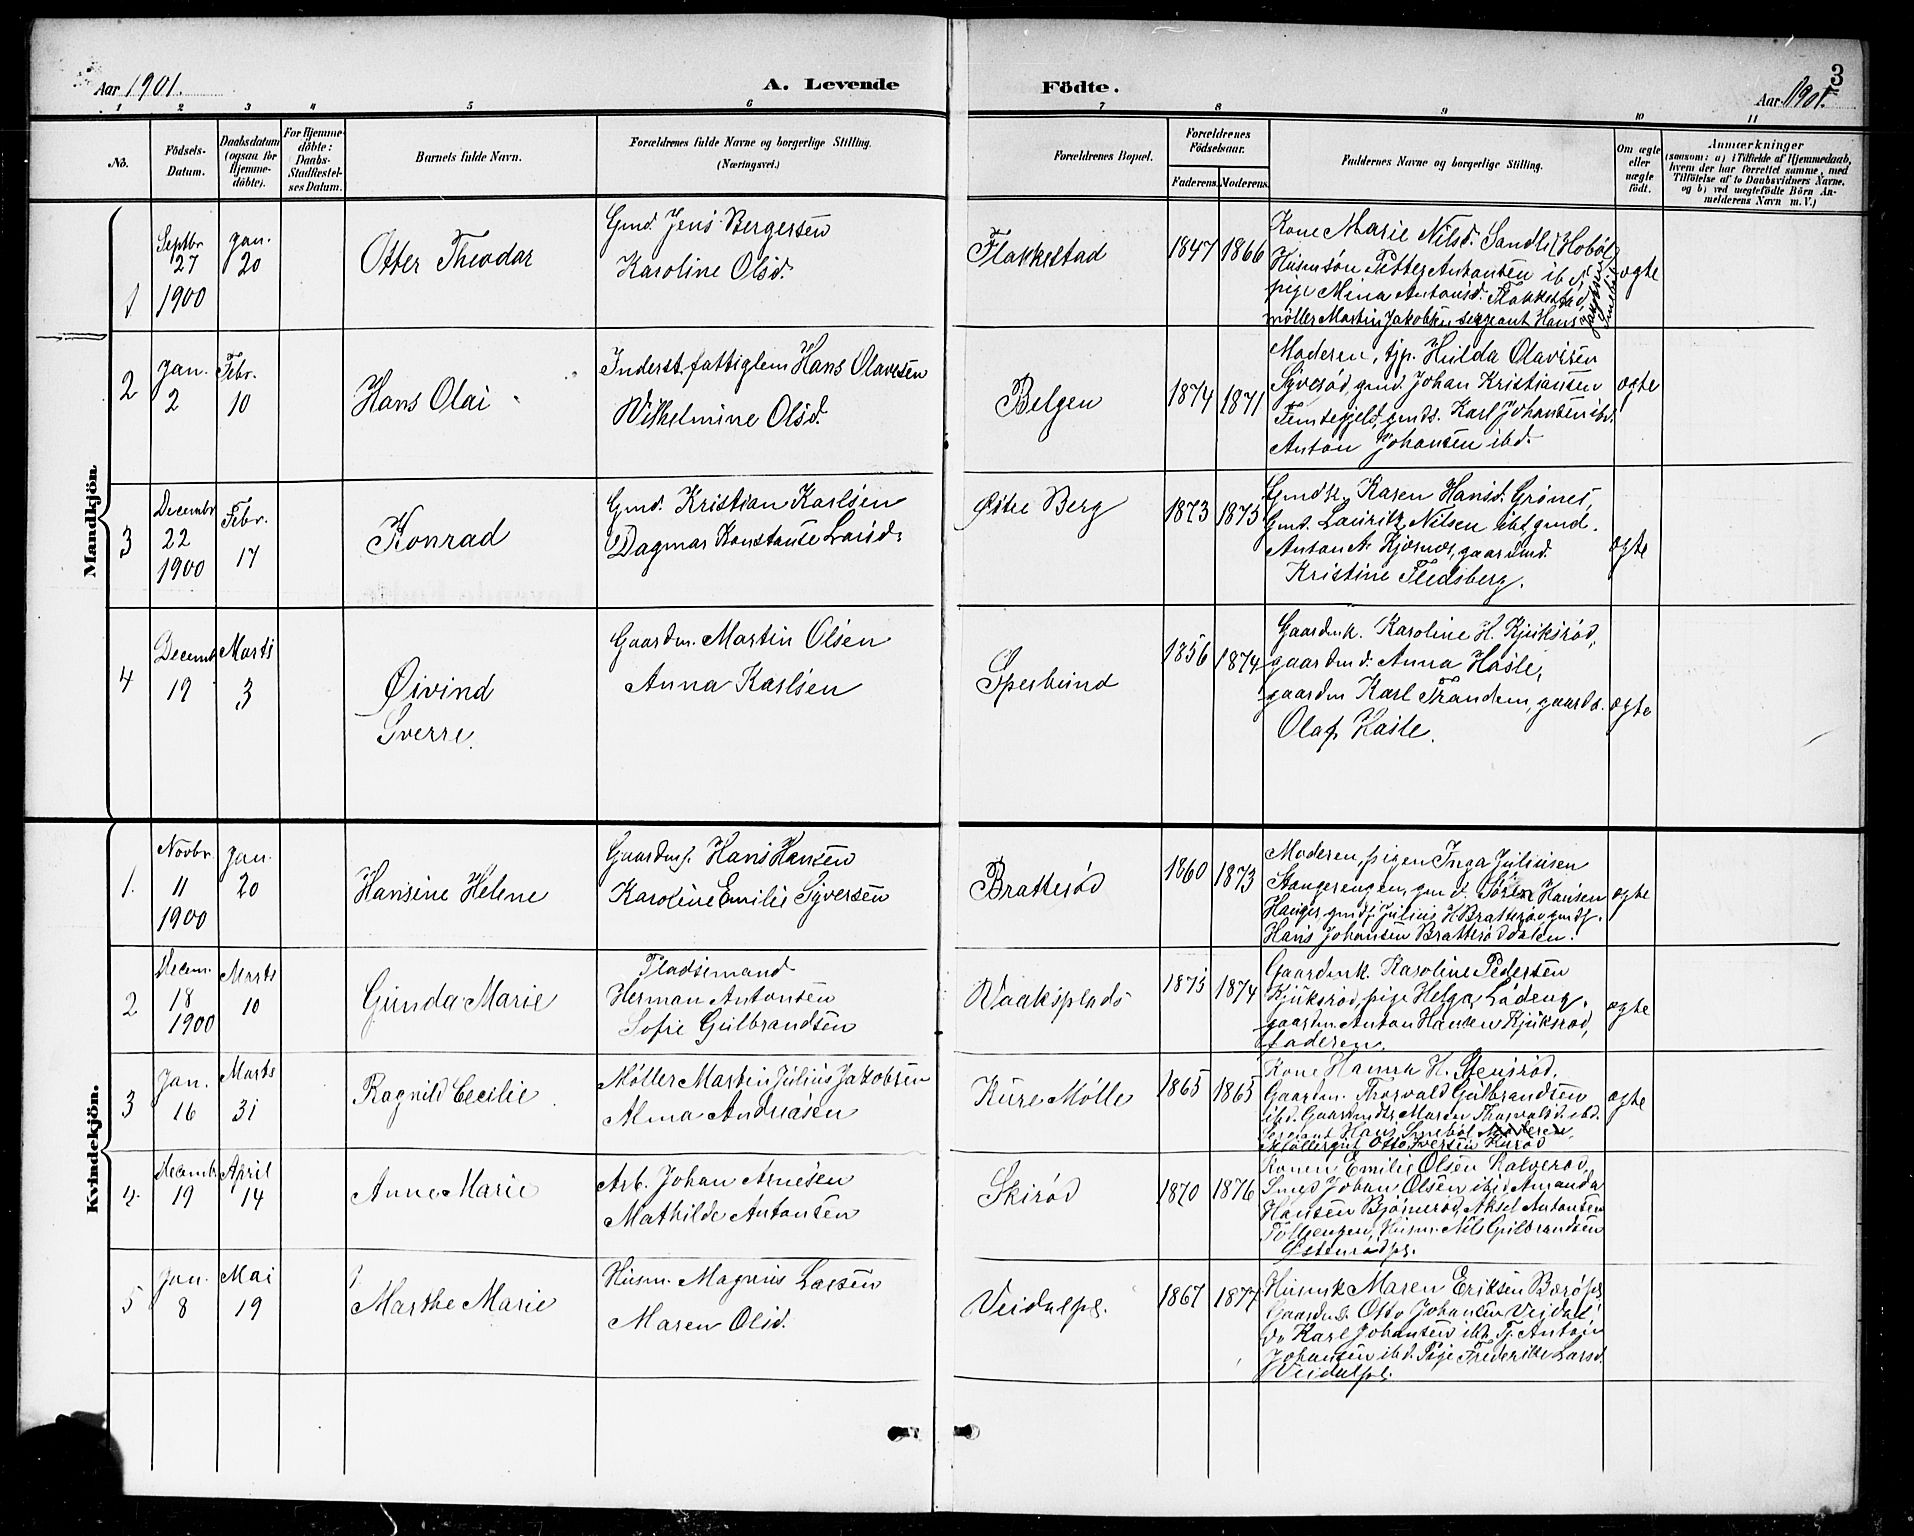 Aar 1901.
A. Levende
Födte.
3
Aar 1901.
1 2 3 4 5 6 7 8 9 10 11
No.
Födsels-
Datum.
Daabsdatum
(ogsaa for
Hjemme-
döbte).
For Hjemme-
döbte:
Daabs-
Stadfæstel-
ses Datum.
Barnets fulde Navn.
Forældrenes fulde Navne og borgerlige Stilling.
(Næringsvei.)
Forældrenes Bopæl.
Forældrenes
Födselsaar.
Faderens. Moderens.
Faddernes Navne og borgerlige Stilling.
Om ægte
eller
uægte
födt.
Anmærkninger
(saasom: a) i Tilfælde af Hjemmedaab,
hvem der har forrettet samme, med
Tilföielse af to Daabsvidners Navne,
og b) ved uægtefödte Börn An-
melderens Navn m. V.)
Mandkjön.
1
Septbr.
27
1900
Jan.
20
Otter Theodor
Gmd. Jens Bergersen
Karoline Olsd.
Flakkestad
1847 1866
Kone Marie Nilsd. Sandli Hobøl
Husmsøn Petter Antonsen ibd.
pige Mina Antonsd. Flakkestad
møller Martin Jakobsen sergeant Hans
ægte
2
Jan.
2
Febr.
10
Hans Olai
Inderst. fattiglem Hans Olavesen
Wilhelmine Olsd.
Belgen
1874 1871
Moderen, tjp. Hulda Olavesen
Syverød gmd. Johan Kristiansen
Femtegjeld, gmds. Karl Johansen ibd.
Anton Johansen ibd.
ægte
3
Decembr
22
1900
Febr.
17
Konrad
Gmd. Kristian Karlsen
Dagmar Konstanse Larsd.
Østre Berg
1873 1875
Gmdk. Karen Hansd. Grønes,
Gmd. Lauritz Nilsen ibd. gmd.
Anton A. Kjærnes, gaarmd.
Kristine Fledsberg.
ægte
4
Decemb
19
Marts
3
Øivind
Sverre.
Gaardm. Martin Olsen
Anna Karlsen
Sperbund
1856 1874
Gaardmk. Karoline H. Kjuksrød,
gaardmd. Anna Hasle,
gaardm Karl Trandem, gaards.
Olaf Hasle.
ægte
Kvindekjön.
1.
Novbr.
11
1900
Jan.
20
Hansine Helene
Gaardmf. Hans Hansen
Karoline Emilie Syversen
Bratterød
1860 1873
Moderen, pigen Inga Juliusen
Stangerengen, gmd. Hansen
Hauger, gmdf. Julius H Bratterød gmdf.
Hans Johansen Bratterøddalen.
ægte
2
Decem.
18
1900
Marts
10
Gunda Marie
Pladsemand
Herman Antonsen
Sofie Gulbrandsen
Vaaksplads
1875 1874
Gaardmk. Karoline Pedersen
Kjuksrød, pige Helga Lødeng.
gaardm. Anton Hansen Kjuksrød,
faderen.
ægte
3
Jan.
16
Marts
31
Ragnild Cecilie
Møller Martin Julius Jakobsen
Alma Andreasen
Kure Mølle
1865 1865
Kone Hanna H. Stensrød,
Gaardm. Thorvald Gulbrandsen
ibd. Gaardmdtr Maren Thorvaldsd. ibd.
Sergeant Hans Smebøl Moderen,
Møllergut Otto Iversen Kurød
ægte
4
Decembr
19
April
14
Anne Marie
Arb. Johan Arnesen
Mathilde Antonsen
Skirød
1870 1876
Konen Emilie Olsen Kalverød,
Smed Johan Olsen ibd. Amanda
Hansen Bjønerød, Aksel Antonsen
Tollgengen, Husm. Nils Gulbrandsen
Østenrødpl.
5
Jan.
8
Mai
19
Marthe Marie
Husm. Magnus Larsen
Maren Olsd.
Veidalpl.
1867 1877
Husmk Maren Eriksen Bærøpl
Gaardmd. Otto Johansen Veidal
Do Karl Johansen ibd. Tj. Anton
Johansen ibd. Pige Frederikke Larsd.
Veidalpl.